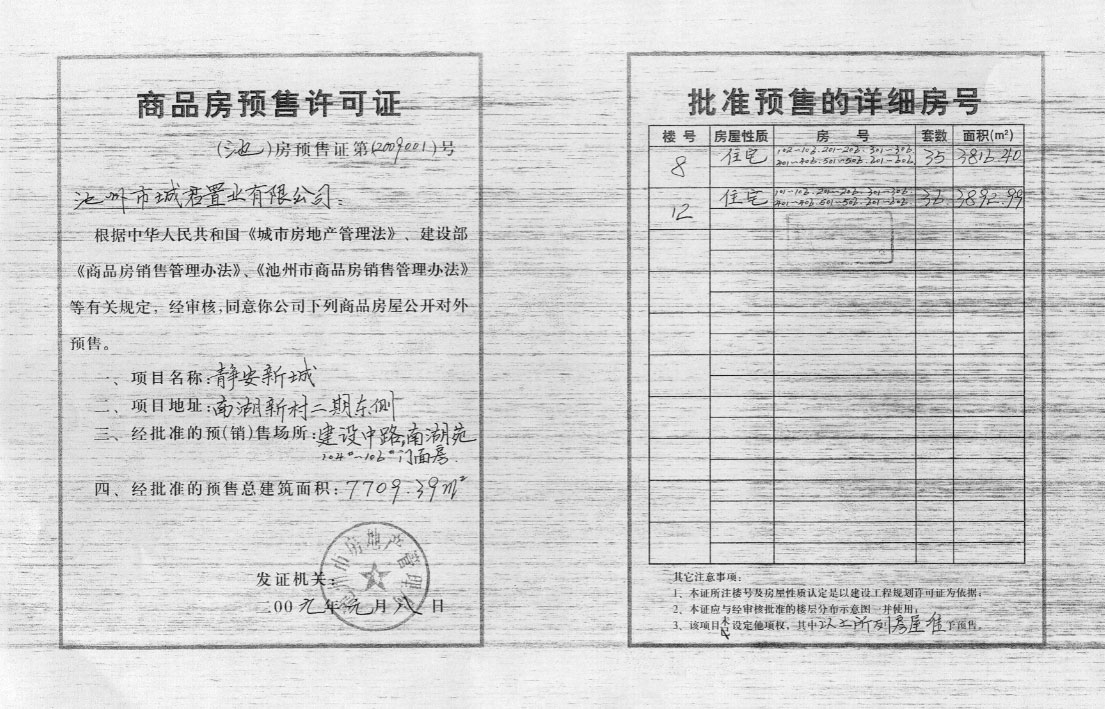 商品房预售许可证
(池)房预售证第(2009001)号
池州市城君置业有限公司：
根据中华人民共和国《城市房地产管理法》、建设部
《商品房销售管理办法》、《池州市商品房销售管理办法》
等有关规定，经审核，同意你公司下列商品房屋公开对外
预售。
一、项目名称：静安新城
二、项目地址：南湖新村二期东侧
三、经批准的预(销)售场所：建设中路，南湖苑
104#~106#门面房.
四、经批准的预售总建筑面积：7709.39m²
发证机关：
池州市房地产管理局
二00九年元月八日
批准预售的详细房号
楼号 房屋性质 房号 套数 面积(m²)
8 住宅 102-106.201-206.301-306. 35 3816.40
401-406.501-506.601-606.
12 住宅 101-106.201-206.301-306. 36 3892.99
401-406.501-506.601-606.
其它注意事项：
1、本证所注楼号及房屋性质认定是以建设工程规划许可证为依据；
2、本证应与经审核批准的楼层分布示意图一并使用；
3、该项目未设定他项权，其中以上所列房屋准予预售。